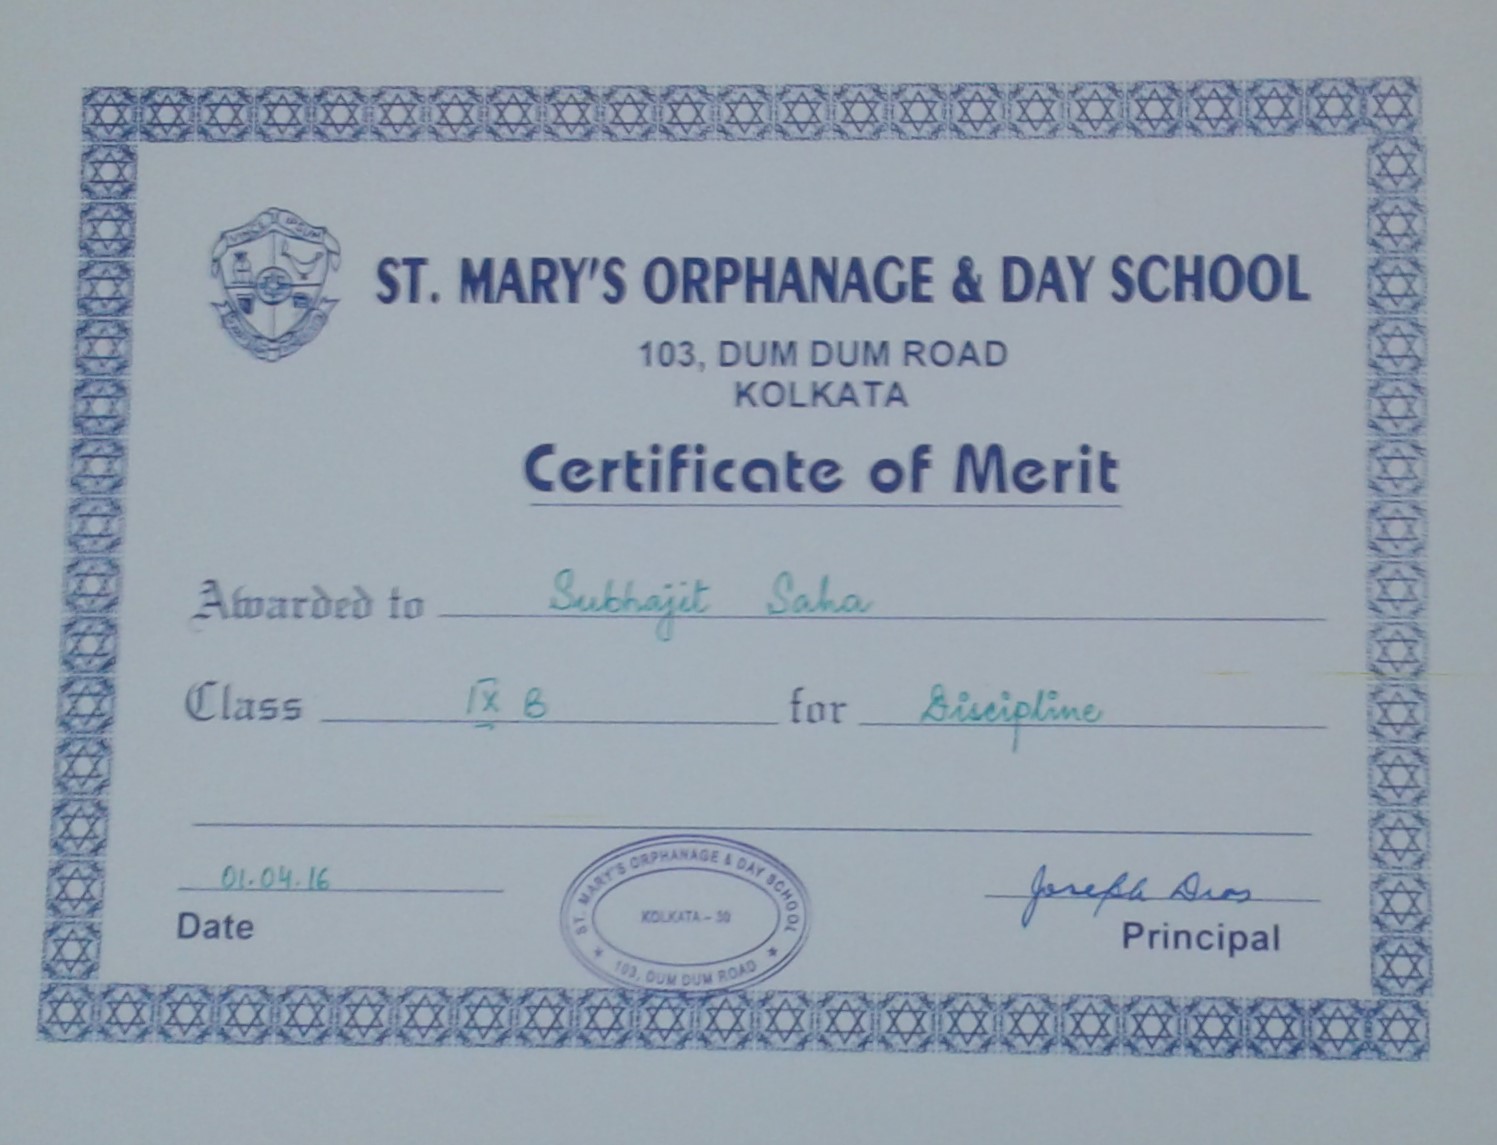 ST. MARY'S ORPHANAGE & DAY SCHOOL
103, DUM DUM ROAD
KOLKATA
Certificate of Merit
Awarded to Subhajit Saha
Class IX B for Discipline
01.04.16
Date
ST. MARY'S ORPHANAGE & DAY SCHOOL
KOLKATA - 30
103, DUM DUM ROAD
Joseph
Principal